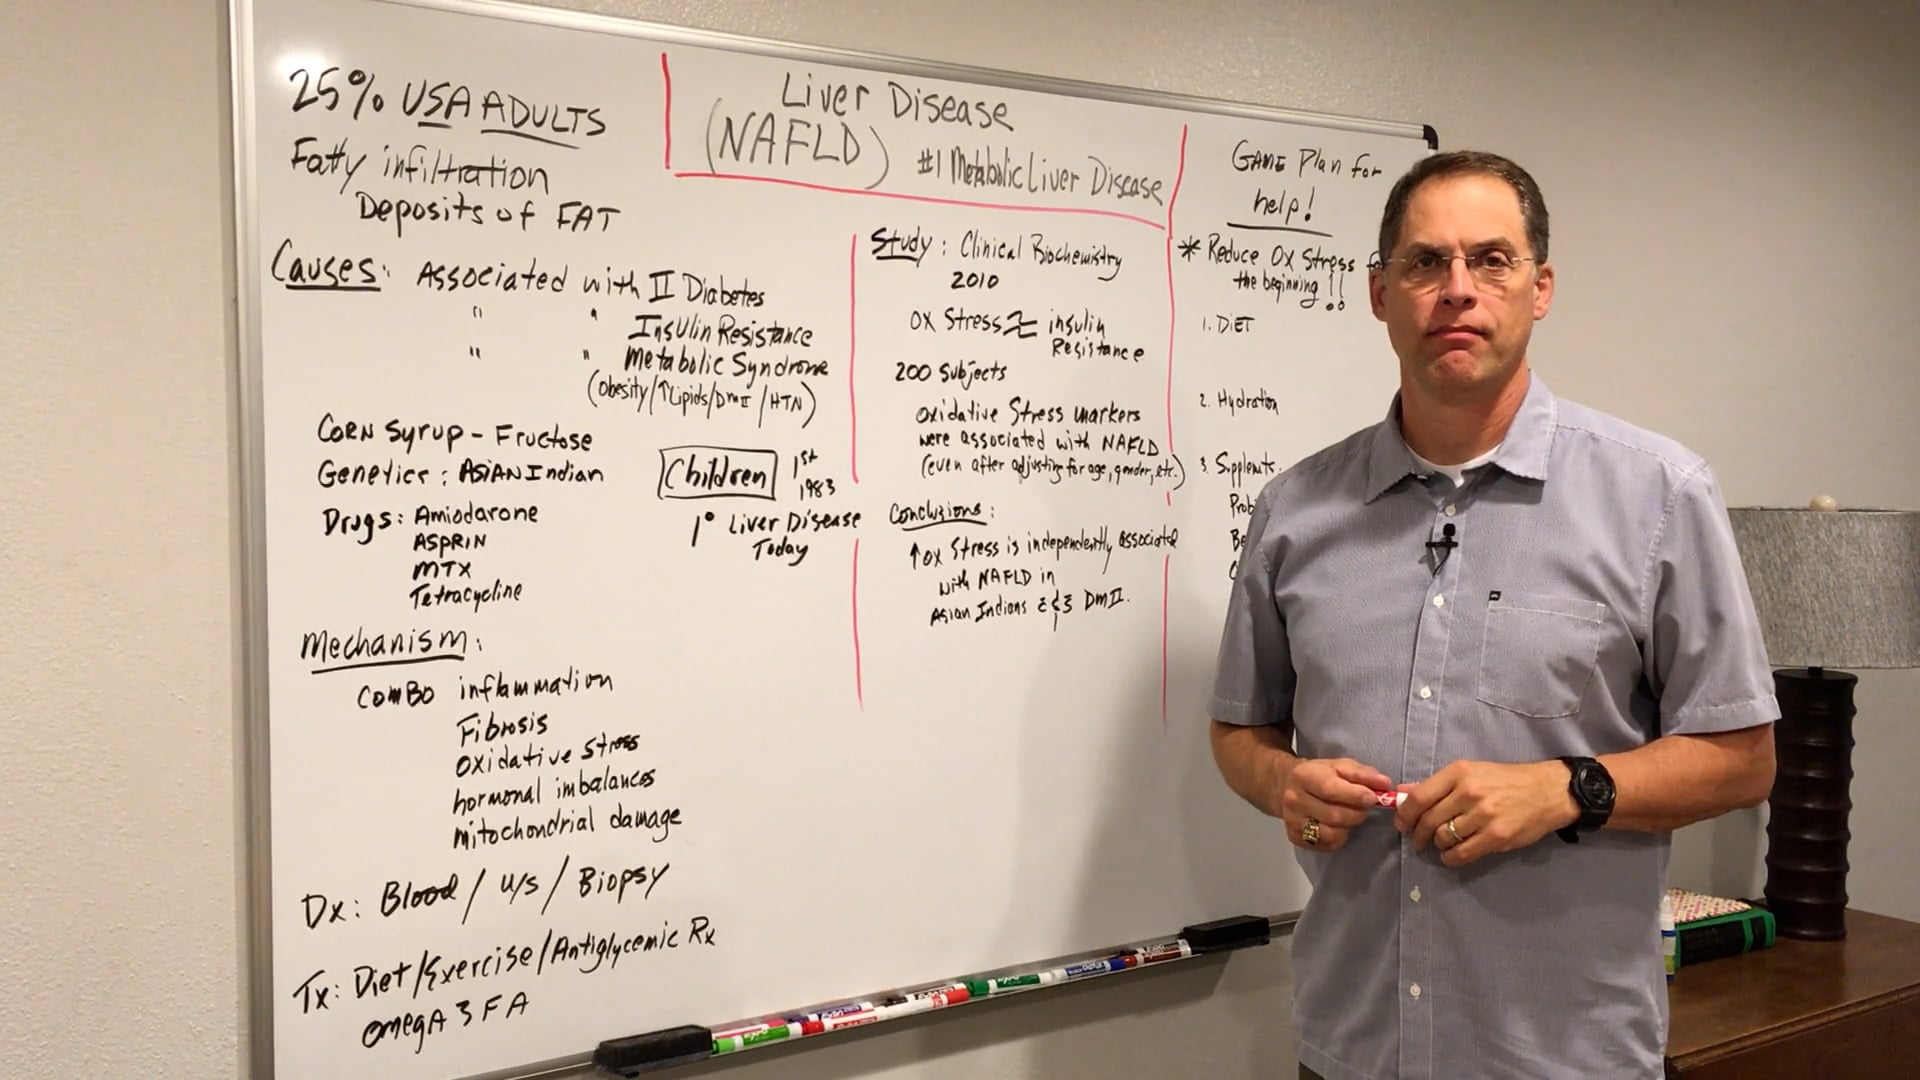 25% USA ADULTS
Fatty infiltration
Deposits of FAT
Causes: Associated with II Diabetes
" " Insulin Resistance
" " Metabolic Syndrome
(Obesity/↑Lipids/DmII/HTN)
CORN Syrup - Fructose
Genetics: ASIAN Indian
Drugs: Amiodarone
ASPRIN
MTX
Tetracycline
Children 1st
1983
1° Liver Disease
Today
Mechanism:
COMBO inflammation
Fibrosis
Oxidative Stress
hormonal imbalances
mitochondrial damage
Dx: Blood / U/S / Biopsy
Tx: Diet/Exercise/Antiglycemic Rx
omegA 3 FA
Liver Disease
(NAFLD) #1 Metabolic Liver Disease
Study: Clinical Biochemistry
2010
OX Stress ≈ insulin
Resistance
200 Subjects
Oxidative Stress markers
were associated with NAFLD
(even after adjusting for age, gender, etc.)
Conclusions:
↑ox Stress is independently associated
with NAFLD in
Asian Indians DmII.
GAME Plan for
help!
* Reduce Ox Stress
the beginning!!
1. DIET
2. Hydration
3.